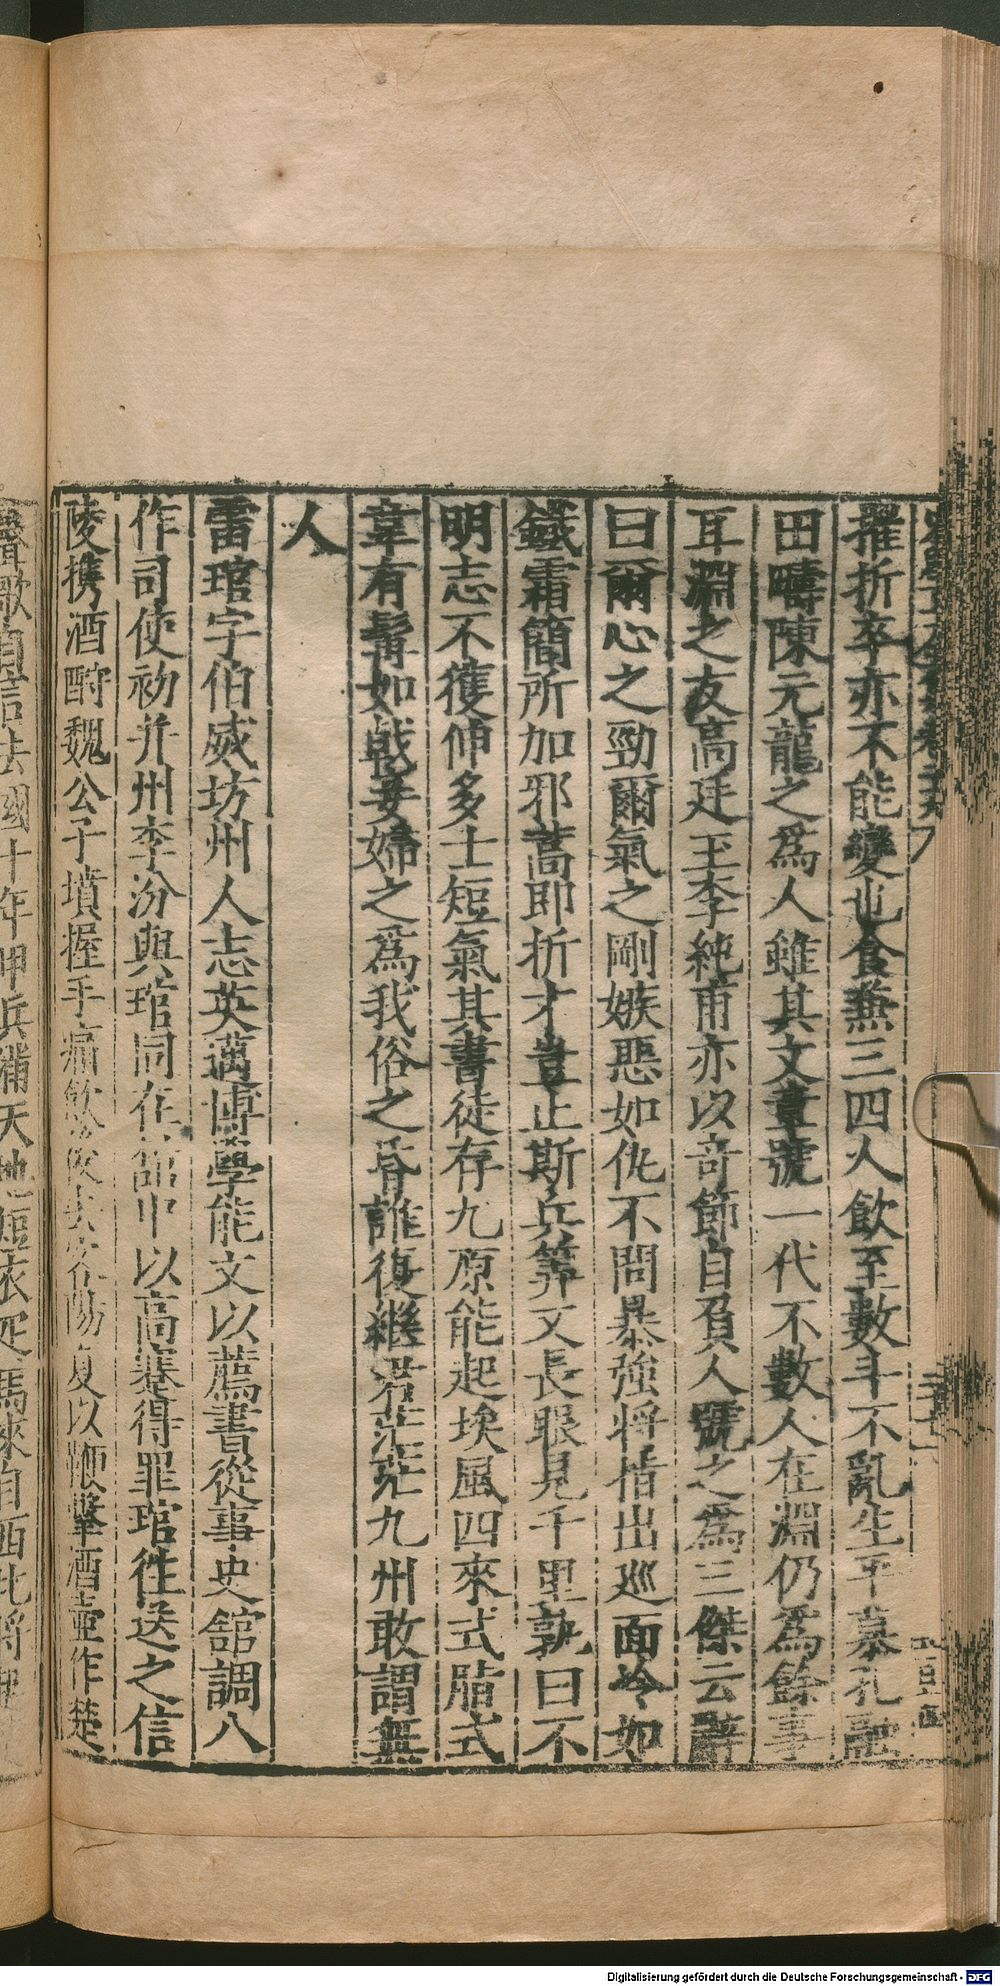 摧折卒亦不能變也食兼三四人飲至數斗不亂生平慕孔融
田疇陳元龍之爲人雖其文章號一代不數人在淵仍爲餘事
耳淵之友高廷玉李純甫亦以奇節自負人號之爲三傑云辭
曰爾心之勁爾氣之剛嫉惡如仇不問暴強将指出巡面冷如
鐵霜簡所加邪蒿即折才豈止斯兵筭文長眼見千里孰曰不
明志不獲伸多士短氣其書徒存九原能起埃風四來式脂式
韋有髯如戟妾婦之爲我俗之昏誰復繼茫茫九州敢謂無
人
雷琯字伯威坊州人志英邁博學能文以薦書從事史舘調八
作司使初并州李汾與琯同在舘中以高蹇得罪琯徃送之信
陵携酒酹魏公子墳握手痛飲陽復以鞭擊酒壷作楚
聲歌自言去國十年甲兵滿天地短衣匹馬來自西北將
Digitalisierung gefördert durch die Deutsche Forschungsgemeinschaft - DFG